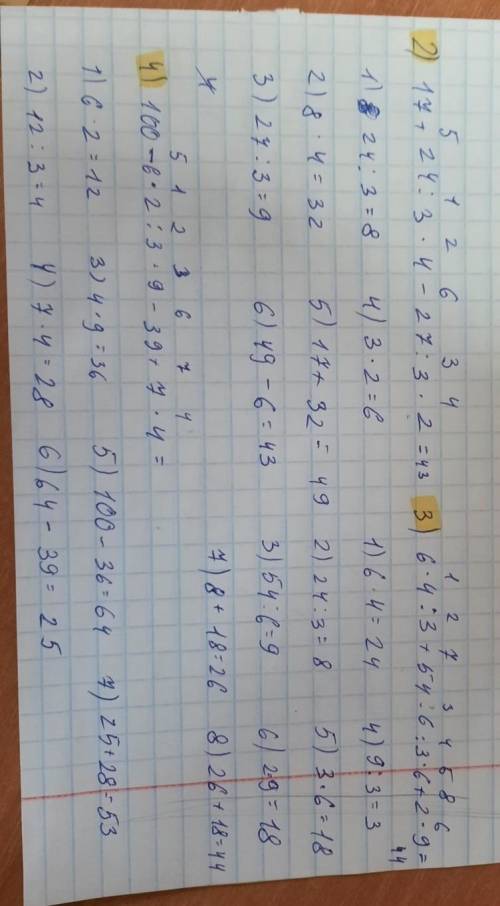 5 1 2 6 3 4
2) 17 + 24 : 3 · 4 - 27 : 3 · 2 = 43
1) 24 : 3 = 8 4) 3 · 2 = 6
2) 8 · 4 = 32 5) 17 + 32 = 49
3) 27 : 3 = 9 6) 49 - 6 = 43
1 2 7 3 4 5 8 6
3) 6 · 4 : 3 + 54 : 6 : 3 · 6 + 2 · 9 =
44
1) 6 · 4 = 24 4) 9 : 3 = 3
2) 24 : 3 = 8 5) 3 · 6 = 18
3) 54 : 6 = 9 6) 2·9 = 18
7) 8 + 18 = 26 8) 26 + 18 = 44
5 1 2 3 6 7 4
4) 100 - 6 · 2 : 3 · 9 - 39 + 7 · 4 =
1) 6 · 2 = 12 3) 4 · 9 = 36 5) 100 - 36 = 64 7) 25 + 28 = 53
2) 12 : 3 = 4 4) 7 · 4 = 28 6) 64 - 39 = 25